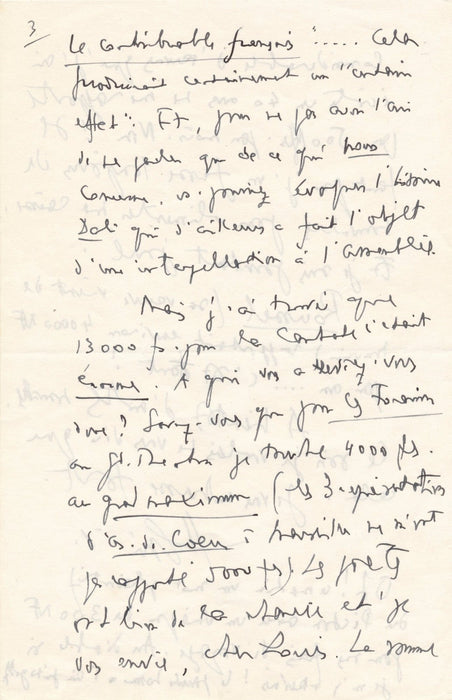 3
Le contribuable français "..... Cela
produirait certainement un "certain
effet". Et, pour ne pas avoir l'air
de ne parler que de ce qui nous
concerne. vs. pourriez évoquer l'histoire
Dali qui d'ailleurs a fait l'objet
d'une interpellation à l'Assemblée.
Mais j'ai que
13000 f. pour la Cantate c'était
énorme. A quoi vs a vous
donc? Savez-vous que pour les Forains
au je touche 4000 frs.
au grand maximum (les 3 représentations
d'As. de Coeur à ne m'ont
rapporté 5000 frs). Les poètes
ont bien de la chance et je
vos envie, cher Louis. La somme